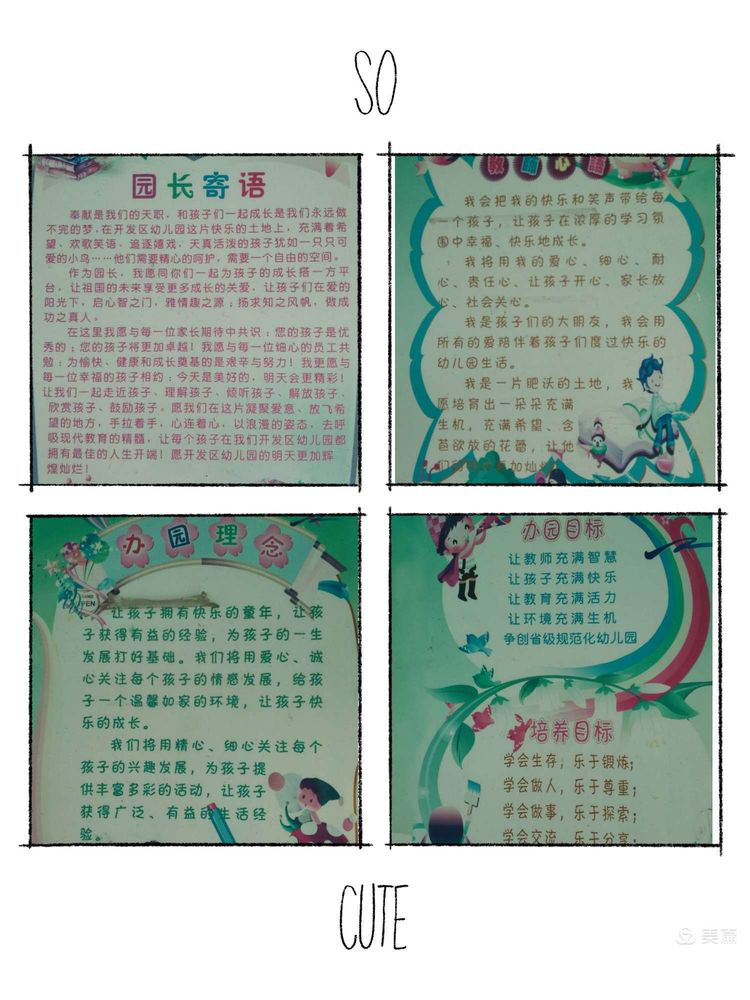 SO
园长寄语
奉献是我们的天职，和孩子们一起成长是我们永远做
不完的梦，在开发区幼儿园这片快乐的土地上，充满着希
望、欢歌笑语、追逐嬉戏，天真活泼的孩子犹如一只只可
爱的小鸟……他们需要精心的呵护，需要一个自由的空间。
作为园长，我愿同你们一起为孩子的成长搭一方平
台，让祖国的未来享受更多成长的关爱，让孩子们在爱的
阳光下，启心智之门，雅情趣之源；扬求知之风帆，做成
功之真人。
在这里我愿与每一位家长期待中共识：您的孩子是优
秀的；您的孩子将更加卓越！我愿与每一位细心的员工共
勉：为愉快、健康和成长奠基的是艰辛与努力！我更愿与
每一位幸福的孩子相约：今天是美好的，明天会更精彩！
让我们一起走近孩子、理解孩子、倾听孩子、解放孩子、
欣赏孩子、鼓励孩子。愿我们在这片凝聚爱意、放飞希
望的地方，手拉着手，心连着心，以浪漫的姿态，去呼
吸现代教育的精髓，让每个孩子在我们开发区幼儿园都
拥有最佳的人生开端！愿开发区幼儿园的明天更加辉
煌灿烂！
教师心语
我会把我的快乐和笑声带给每
一个孩子，让孩子在浓厚的学习氛
围中幸福、快乐地成长。
我将用我的爱心、细心、耐
心、责任心、让孩子开心、家长放
心、社会关心。
我是孩子们的大朋友，我会用
所有的爱陪伴着孩子们度过快乐的
幼儿园生活。
我是一片肥沃的土地，我
愿培育出一朵朵充满
生机，充满希望、含
苞欲放的花蕾，让他
们的更加灿烂
办园理念
OPEN
让孩子拥有快乐的童年，让孩
子获得有益的经验，为孩子的一生
发展打好基础。我们将用爱心、诚
心关注每个孩子的情感发展，给孩
子一个温馨如家的环境，让孩子快
乐的成长。
我们将用精心、细心关注每个
孩子的兴趣发展，为孩子提
供丰富多彩的活动，让孩子
获得广泛、有益的生活经
验。
办园目标
让教师充满智慧
让孩子充满快乐
让教育充满活力
让环境充满生机
争创省级规范化幼儿园
培养目标
学会生存，乐于锻炼；
学会做人，乐于尊重；
学会做事，乐于探索；
学会交流，乐于分享；
CUTE
美篇